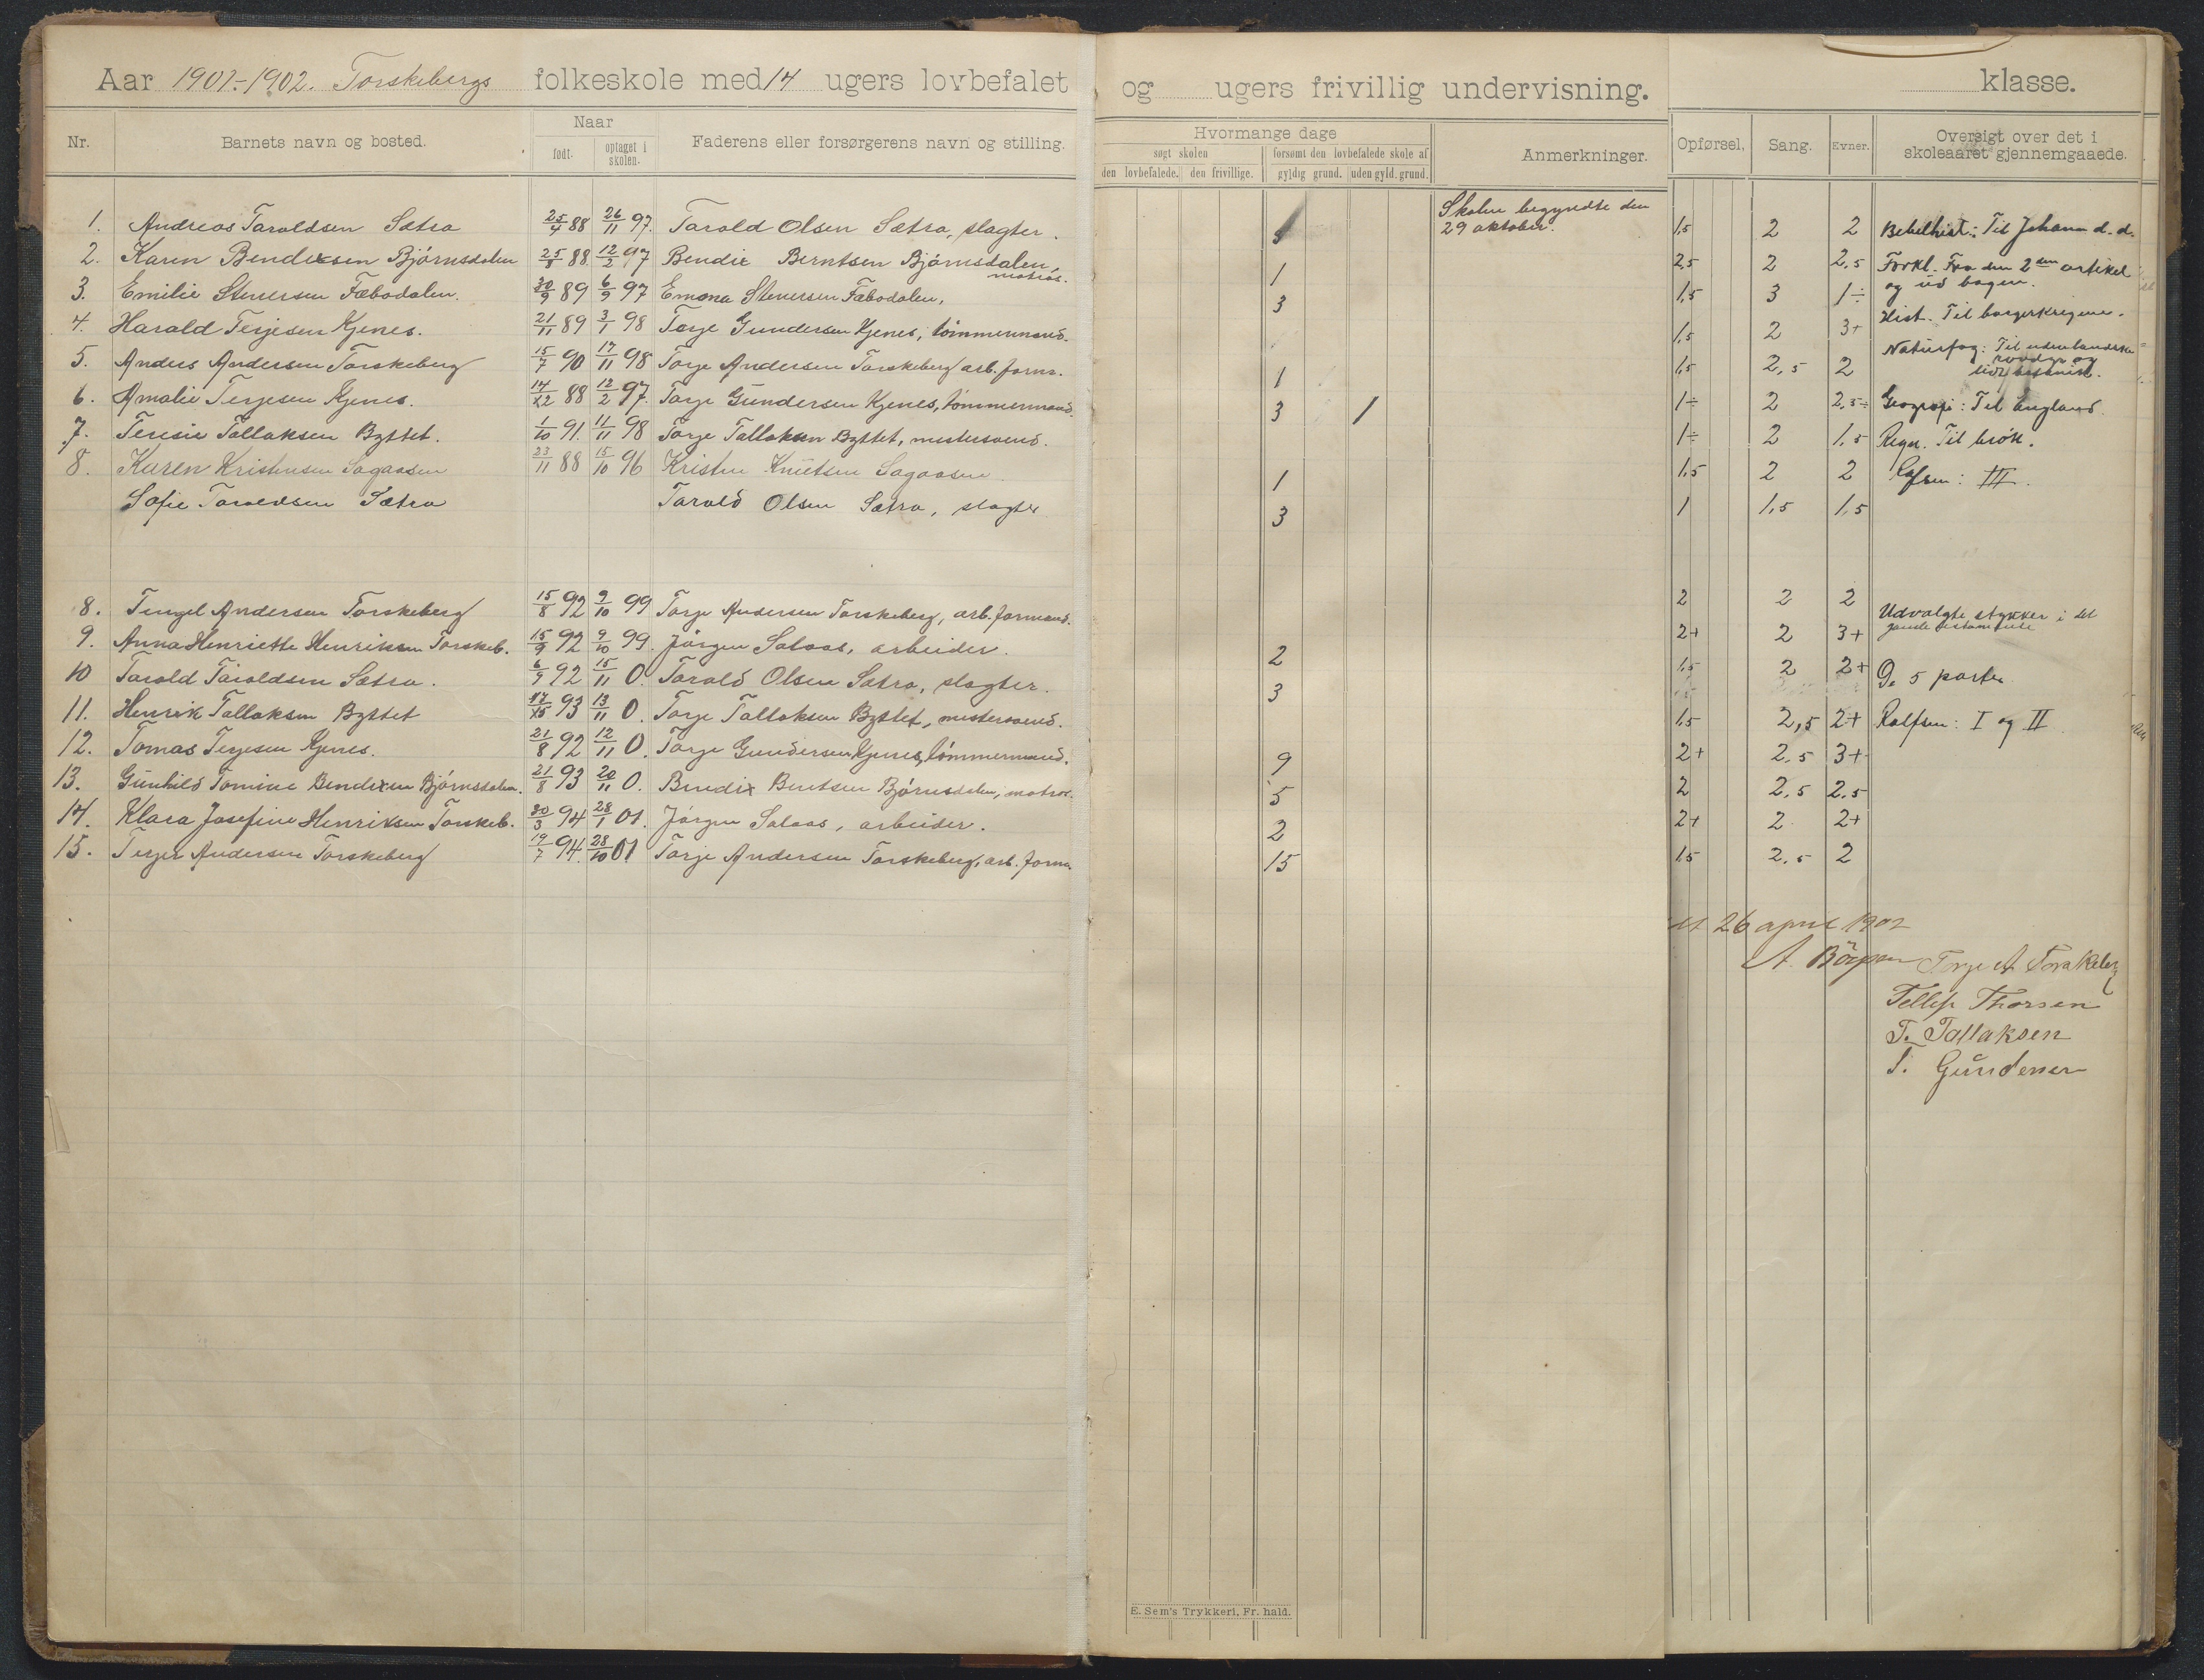 Aar 1901-1902. Torskebergs folkeskole med 14 ugers lovbefalet og ugers frivillig undervisning. klasse.
Nr. Barnets navn og bosted. Naar født. optaget i skolen. Faderens eller forsørgerens navn og stilling.
1. Andreas Taraldsen Sætra 25/4 88 26/11 97. Tarald Olsen Sætra, slagter.
2. Karen Bendixsen Bjórnsdalen 25/8 88 12/2 97 Bendix Berntsen Bjórnsdalen, matros.
3. Emilie Stenersen Fæbodalen. 30/9 89 6/9 97 Emma Stenersen Fæbodalen,
4. Harald Terjesen Kjenes. 21/11 89 3/1 98 Torje Gundersen Kjenes, tómmermand.
5. Anders Andersen Torskeberg 15/7 90 17/11 98 Torje Andersen Torskeberg arb. form.
6. Amalie Terjesen Kjenes. 14/12 88 12/2 97. Torje Gundersen Kjenes, tómmermand.
7. Teresie Tallaksen Byttet. 1/10 91. 11/11 98 Torje Tallaksen Byttet, mestersvend.
8. Karen Kristensen Sagaasen 23/11 88 15/10 96 Kristen Knutsen Sagaasen
Sofie Taraldsen Sætra Tarald Olsen Sætra, slagter
8. Tengel Andersen Torskeberg 15/8 92 9/10 99 Torje Andersen Torskeberg, arb. formand.
9. Anna Henriette Henriksen Torskeb. 15/9 92 9/10 99. Jórgen Salaas, arbeider.
10 Tarald Taraldsen Sætra. 6/9 92 15/11 0. Tarald Olsen Sætra, slagter.
11. Henrik Tallaksen Byttet 93 13/11 0. Torje Tallaksen Byttet, mestersvend.
12. Tomas Terjesen Kjenes. 21/8 92 12/11 0. Torje Gundersen Kjenes, tómmermand.
13. Gunhild Tomine Bendixen Bjórnsdalen. 21/8 93 20/11 0. Bendix Berntsen Bjórnsdalen, matros.
14. Klara Josefine Henriksen Torskeb. 30/3 94 28/1 01. Jórgen Salaas, arbeider.
15. Terjer Andersen Torskeberg 19/7 94. 28/10 01 Torje Andersen Torskeberg, arb. form.
Hvormange dage
søgt skolen forsømt den lovbefalede skole af
den lovbefalede. den frivillige. gyldig grund. uden gyld. grund.
Anmerkninger.
Skolen begyndte den
29 oktober.
1
3
1
3
1
1
3
2
3
9
5
2
15
E. Sem's Trykkeri, Fr. hald.
Opførsel. Sang. Evner. Oversigt over det i skoleaaret gjennemgaaede.
1,5 2 2 Bibelhist.: Til Johann d. d.
2,5 2 2,5 Forkl. Fra den 2den artikel
1,5 3 1÷ og ud bogen.
1,5 2 3+ Hist. Til borgerkrigene.
1,5 2,5 2 Naturfag: Til udenlandske rovdyr og
1÷ 2 2,5÷ Geografi: Til England.
1÷ 2 1,5 Regn. Til brók.
1,5 2 2 Rolfsen: III.
1 1,5 1,5
2 2 2
2+ 2 3+ Udvalgte stykker i det gamle testamente
1,5 2 2+ De 5 parter
1,5 2,5 2+ Rolfsen: I og II
2+ 2,5 3+
2 2,5 2,5
2+ 2 2+
1,5 2,5 2
26 april 1902
Torje A Torskeberg
Tellef Thorsen
T. Tallaksen
T. Gundersen